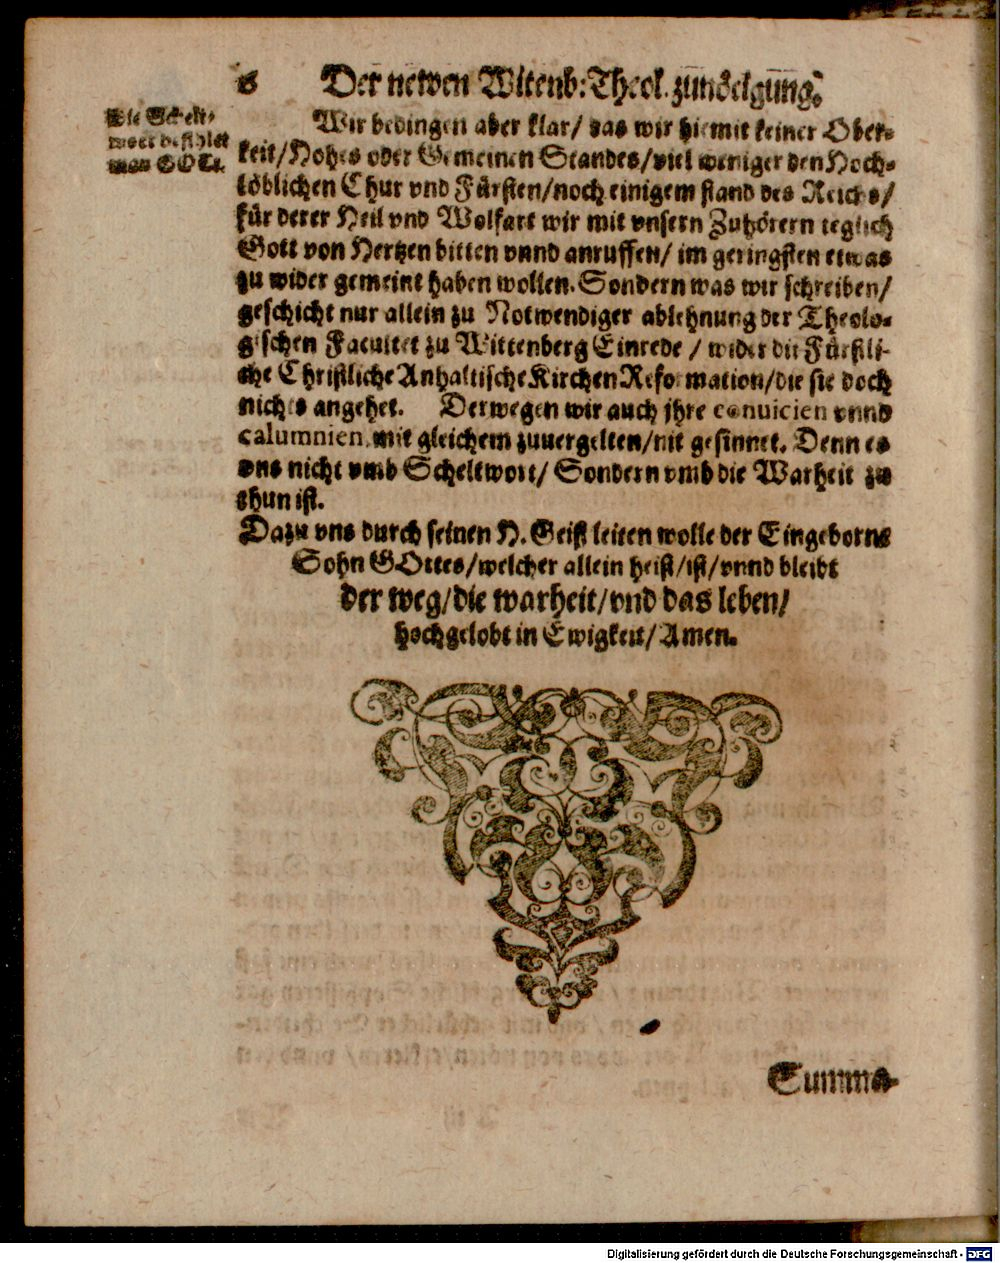 8 Der newen Witenb: Theol. zunötigung.
Die Schelt-
wort befihlet
man GOTt.
Wir bedingen aber klar/ das wir hiemit keiner Ober-
keit/ Hohes oder Gemeinen Standes/ viel weniger den Hoch-
löblichen Chur vnd Fürsten/ noch einigem stand des Reichs/
für derer Heil vnd Wolfart wir mit vnsern Zuhörern teglich
Gott von Hertzen bitten vnnd anruffen/ im geringsten etwas
zu wider gemeint haben wollen. Sondern was wir schreiben/
geschicht nur allein zu Notwendiger ablehnung der Theolo-
gischen Facultet zu Wittenberg Einrede / wider die Fürstli-
che Christliche Anhaltische Kirchen Reformation/ die sie doch
nichts angehet. Derwegen wir auch jhre conuicien vnnd
calumnien mit gleichem zuuergelten/ nit gesinnet. Denn es
vns nicht vmb Scheltwort/ Sondern vmb die Warheit zu
thun ist.
Dazu vns durch seinen H. Geist leiten wolle der Eingeborne
Sohn GOttes/ welcher allein heist/ ist/ vnnd bleibt
der weg/ die warheit/ vnd das leben/
hochgelobt in Ewigkeit/ Amen.
Summa
Digitalisierung gefördert durch die Deutsche Forschungsgemeinschaft - DFG